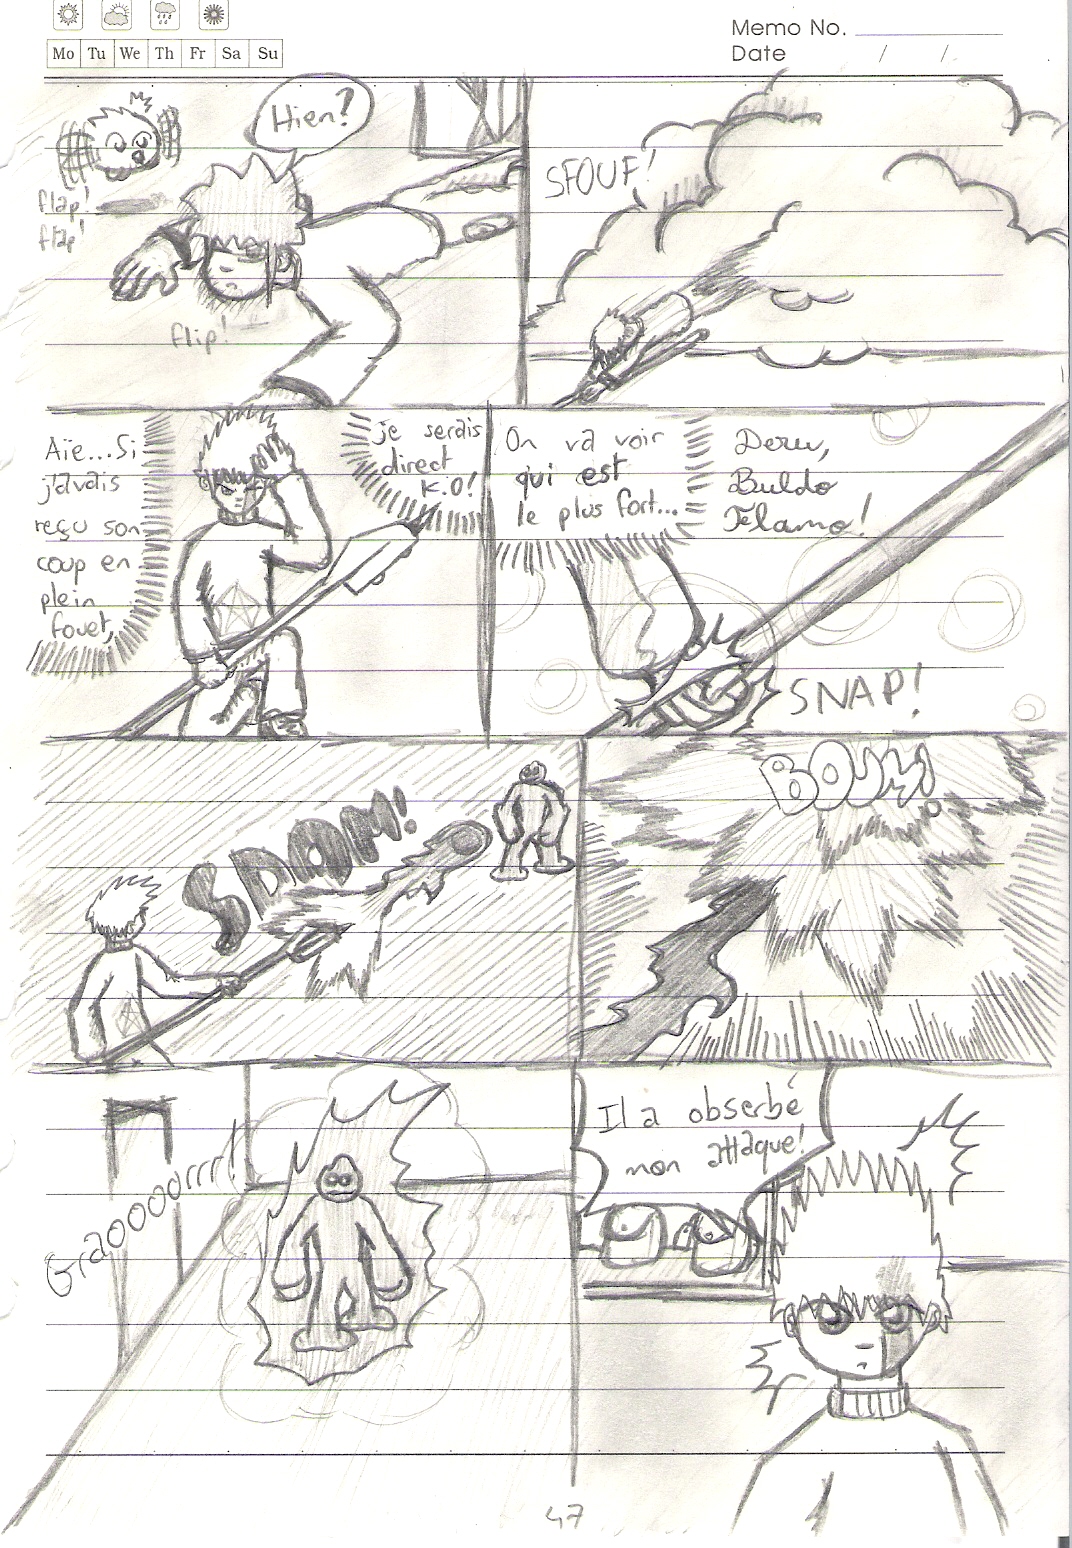 Mo Tu We Th Fr Sa Su
Memo No.
Date / /
Hien?
flap!
flap!
flip!
SFOUF!
Aïe...Si
j'avais
reçu son
coup en
plein
fouet,
je serais
direct
K.O!
On va voir
qui est
le plus fort...
Deru,
Buldo
Flamo!
SNAP!
SDAM!
BOUM!
Graoooorrr!
Il a obserbé
mon attaque!
47